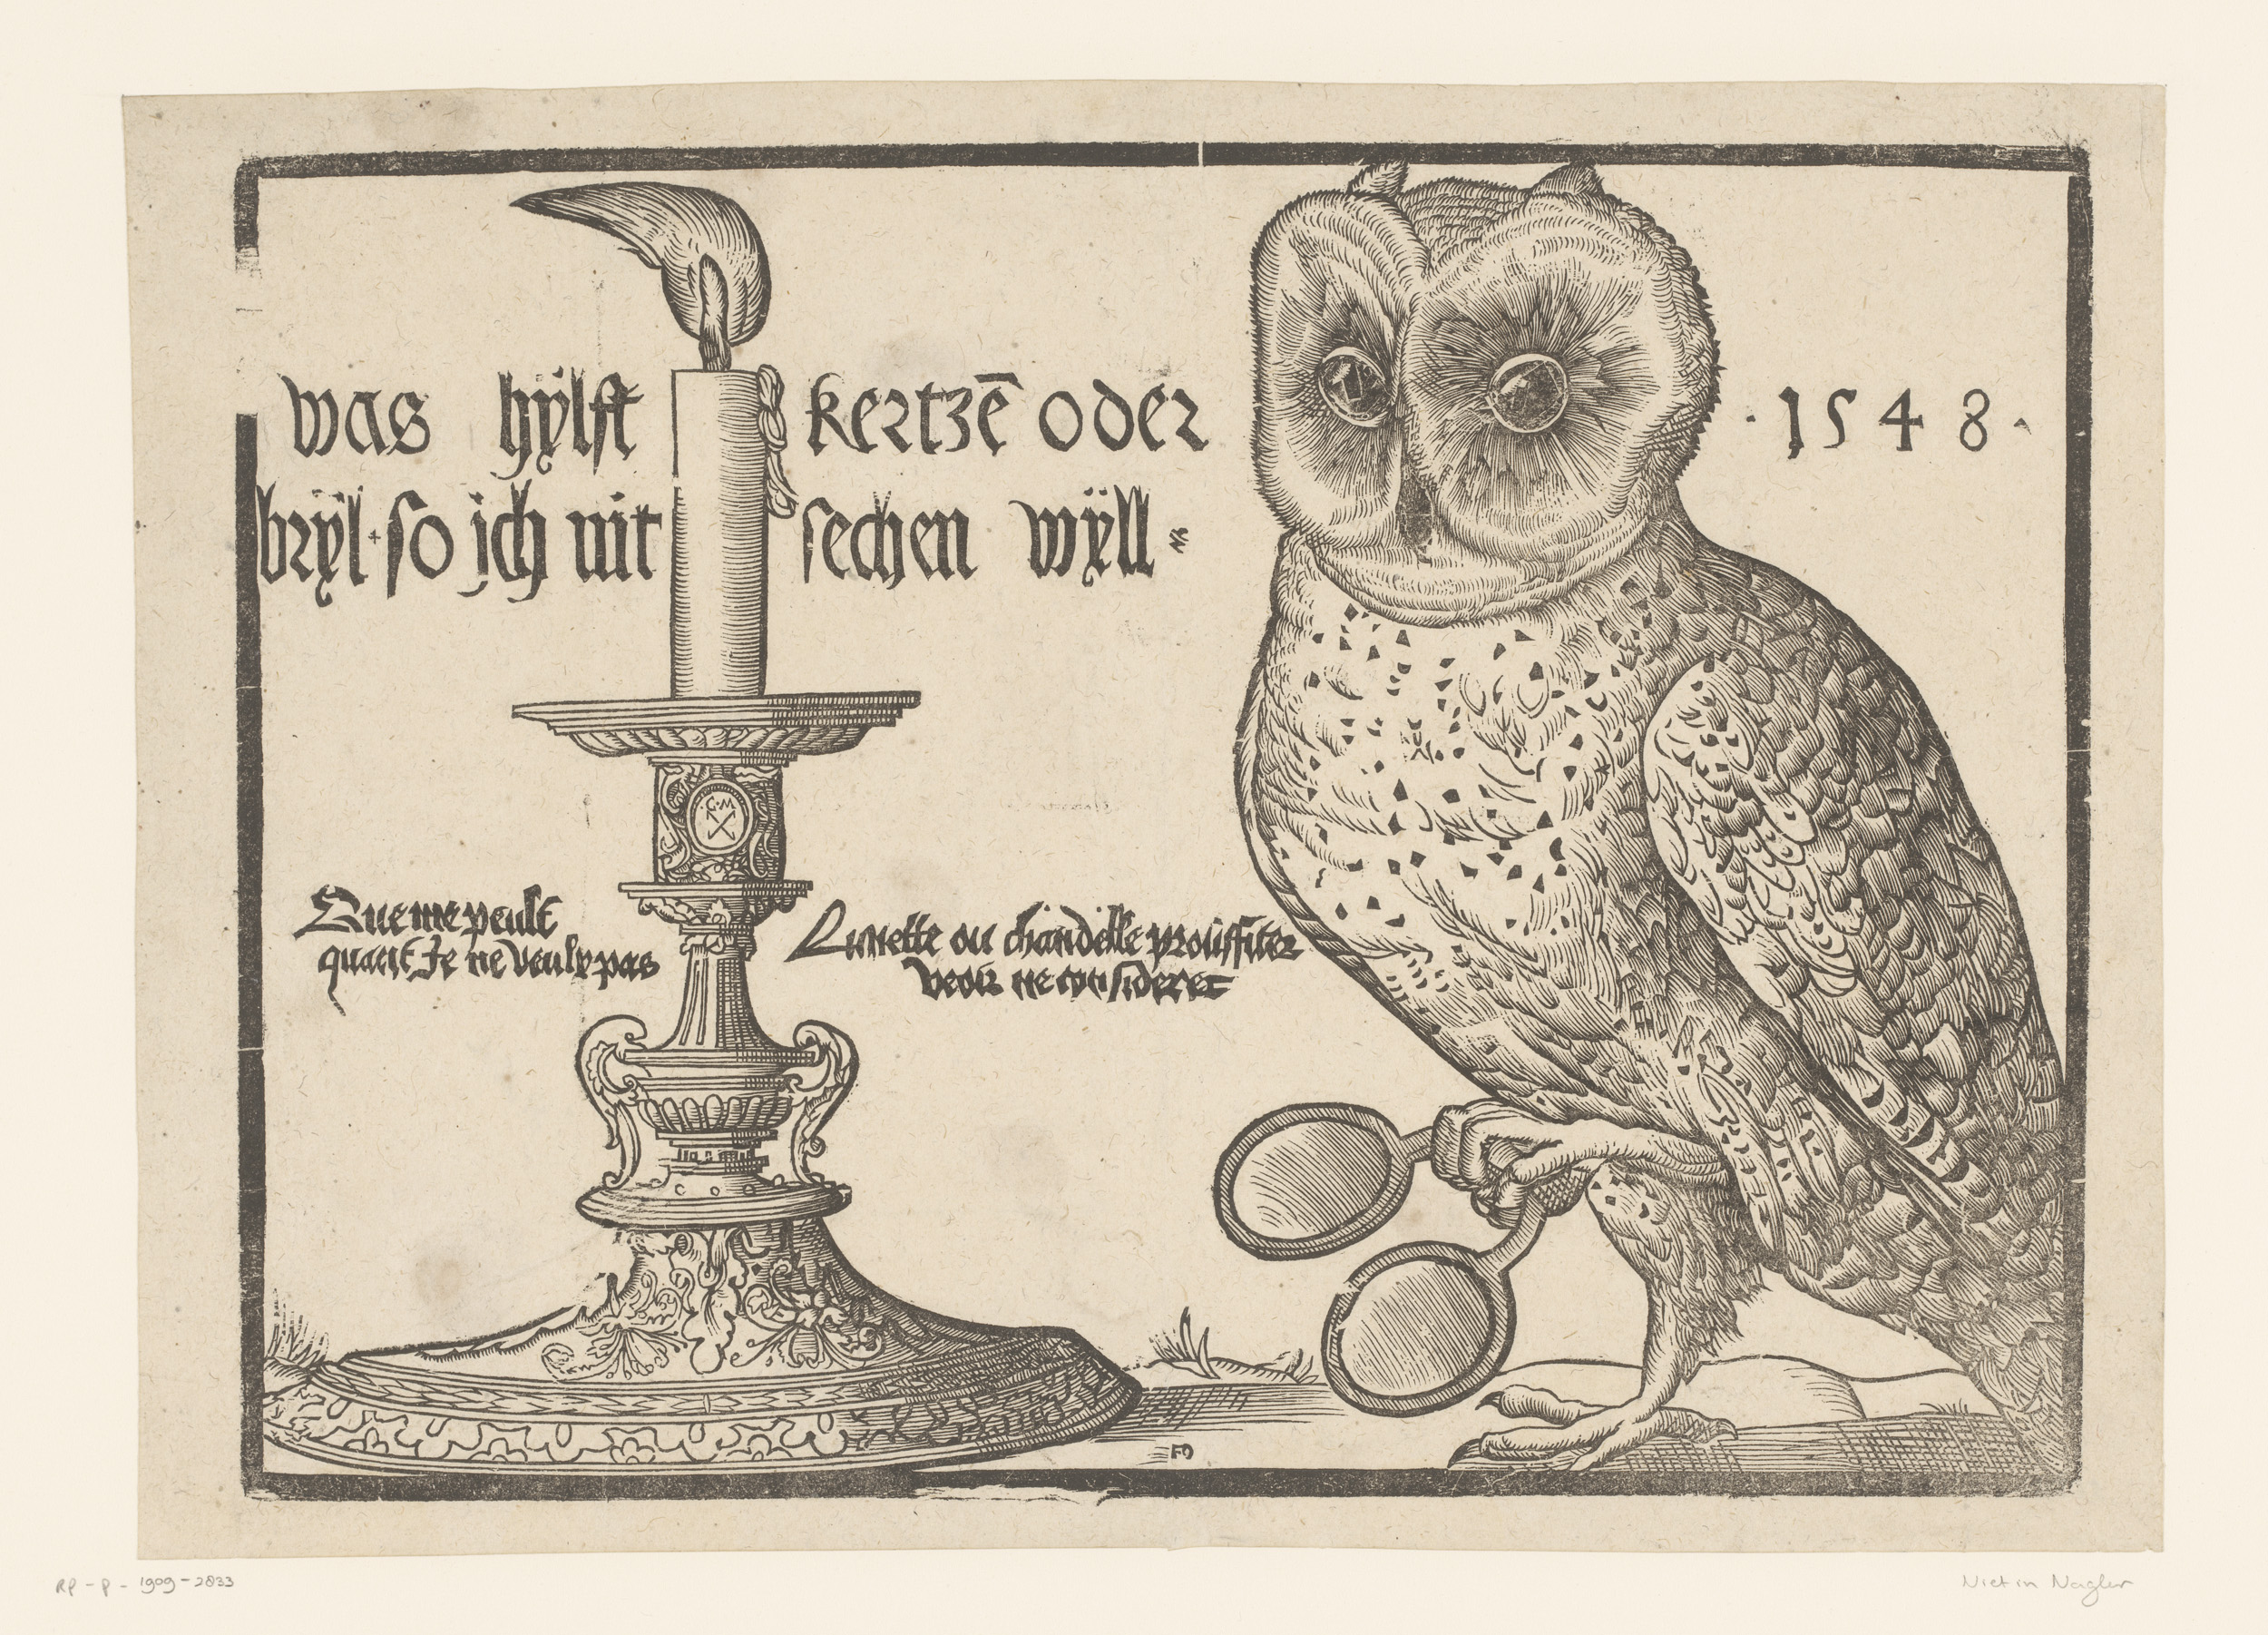 was hÿlft kertzē oder
·1548·
brÿl·so ich nit sechen wÿll
·G·M·
Que me peult Lunette ou chandelle prouffiter
quant Je ne veulx pas veoir ne considerer
RP-P-1909-2833
Niet in Nagler